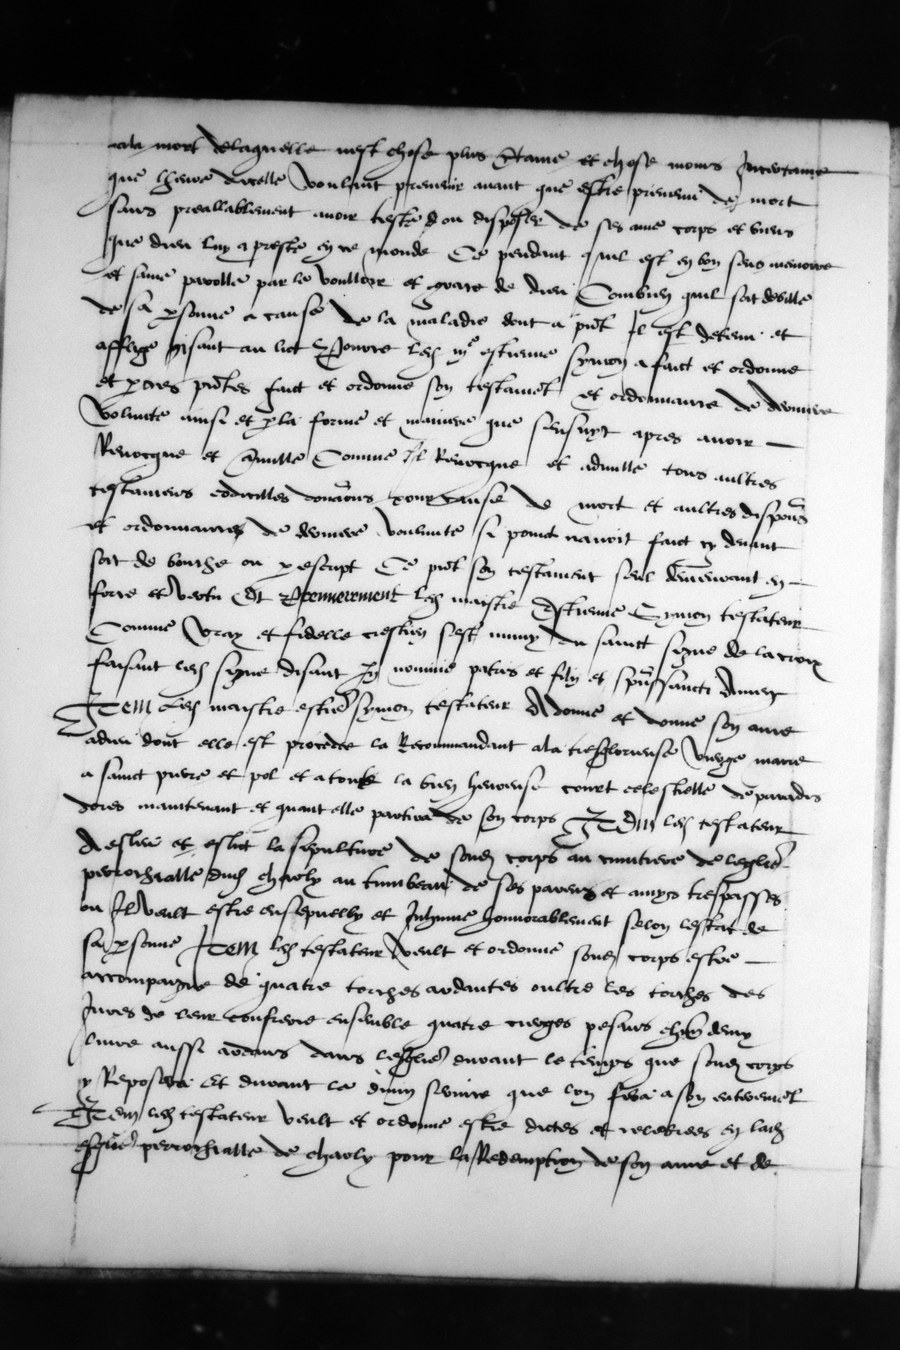 ala mort delaquelle nest chose plus certaine et chose moins Incertaine
que lheure dicelle voulant prevenir avant que estre prevenu de mort
sans preallablement avoir testé et disposer de ses ame corps et biens
que dieu luy a presté en ce monde Ce pendant quil est en bon sens memoire
et saine parolle par le voulloir et grace de dieu Combien quil soit debille
de sa psonne a cause de la maladie dont a pnt Il est detenu et
afflige gisant au lict led me estienne symon a faict et ordonne
et p ces pntes faict et ordonne son testament et ordonnance de derniere
volunte ainsi et p la forme et maniere que sensuyt apres avoir
Revocque et adnulle Comme Il Revocque et adnulle tous aultres
testamens codicilles donaons pour cause de mort et aultres dispons
et ordonnances de derniere volunte si point navoit faict cy devant
soit de bouche ou p escript Ce pnt son testament seul demeurant en
force et vertu Et Premierement led maistre Estienne Symon testateur
Comme vray et fidelle crestien sest muny du sainct signe de la croix
faisant led signe disant In nomine patris et filij et spus sancti Amen
Item led maistre estiene symon testateur A donne et donne son ame
a dieu dont elle est procedee la Recommandant a la tresglorieuse vierge marie
a sainct pierre et pol et a toute la bien heureuse court celestielle de paradis
dores maintenant et quant elle partira de son corps Item led testateur
A esleu et eslist la sepulture de sond corps au cimitiere de leglise
parrochialle dud charly au tumbeau de ses parens et amys trespasses
ou Il veult estre ensepuelly et Inhume honnorablement selon lestat de
sa psonne Item led testateur veult et ordonne sond corps estre
accompaigne de quatre torches ardantes oultre les torches des
Jures de leur confrerie ensemble quatre cierges pesans chun deux
livre aussi ardans dans leglise durant le temps que sond corps
y Reposera Et durant le divin service que lon fera a son enterrement
Item led testateur veult et ordonne estre dictes et celebrees en lad
eglise parrochialle de charly pour la Redemption de son ame et de